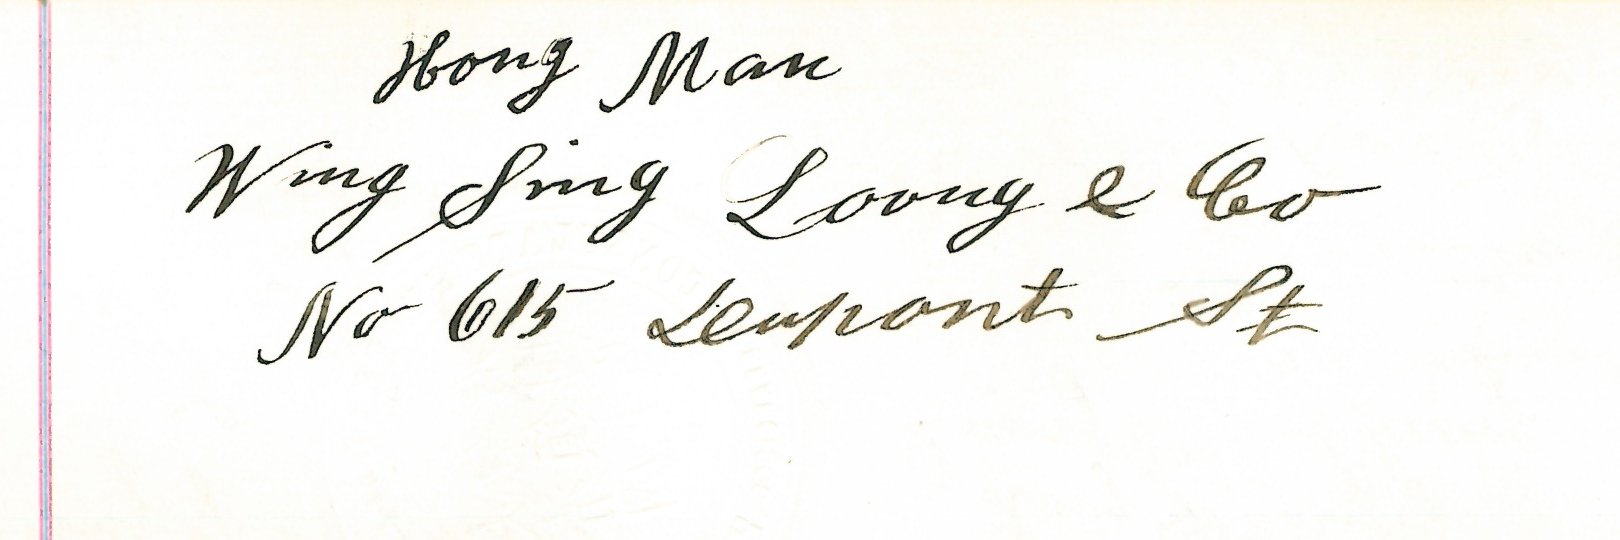 Hong Man
Wing Sing Loong & Co
No 615 Dupont St